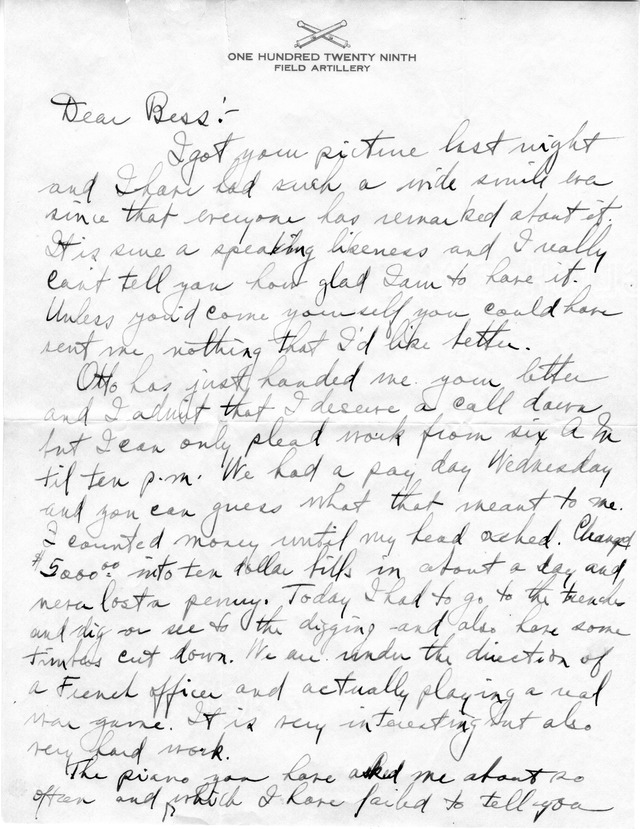 ONE HUNDRED TWENTY NINTH
FIELD ARTILLERY
Dear Bess:-
I got your picture last night
and I have had such a wide smile ever
since that everyone has remarked about it.
It is sure a speaking likeness and I really
can't tell you how glad I am to have it.
Unless you'd come yourself you could have
sent me nothing that I'd like better.
Otto has just handed me your letter
and I admit that I deserve a call down
but I can only plead work from six A M
til ten p.m. We had a pay day Wednesday
and you can guess what that meant to me.
I counted money until my head ached. Changed
$5000.00 into ten dollar bills in about a day and
never lost a penny. Today I had to go to the trenches
and dig or see to the digging and also have some
timbers cut down. We are under the direction of
a French officer and actually playing a real
war game. It is very interesting but also
very hard work.
The piano you have asked me about so
often and which I have failed to tell you